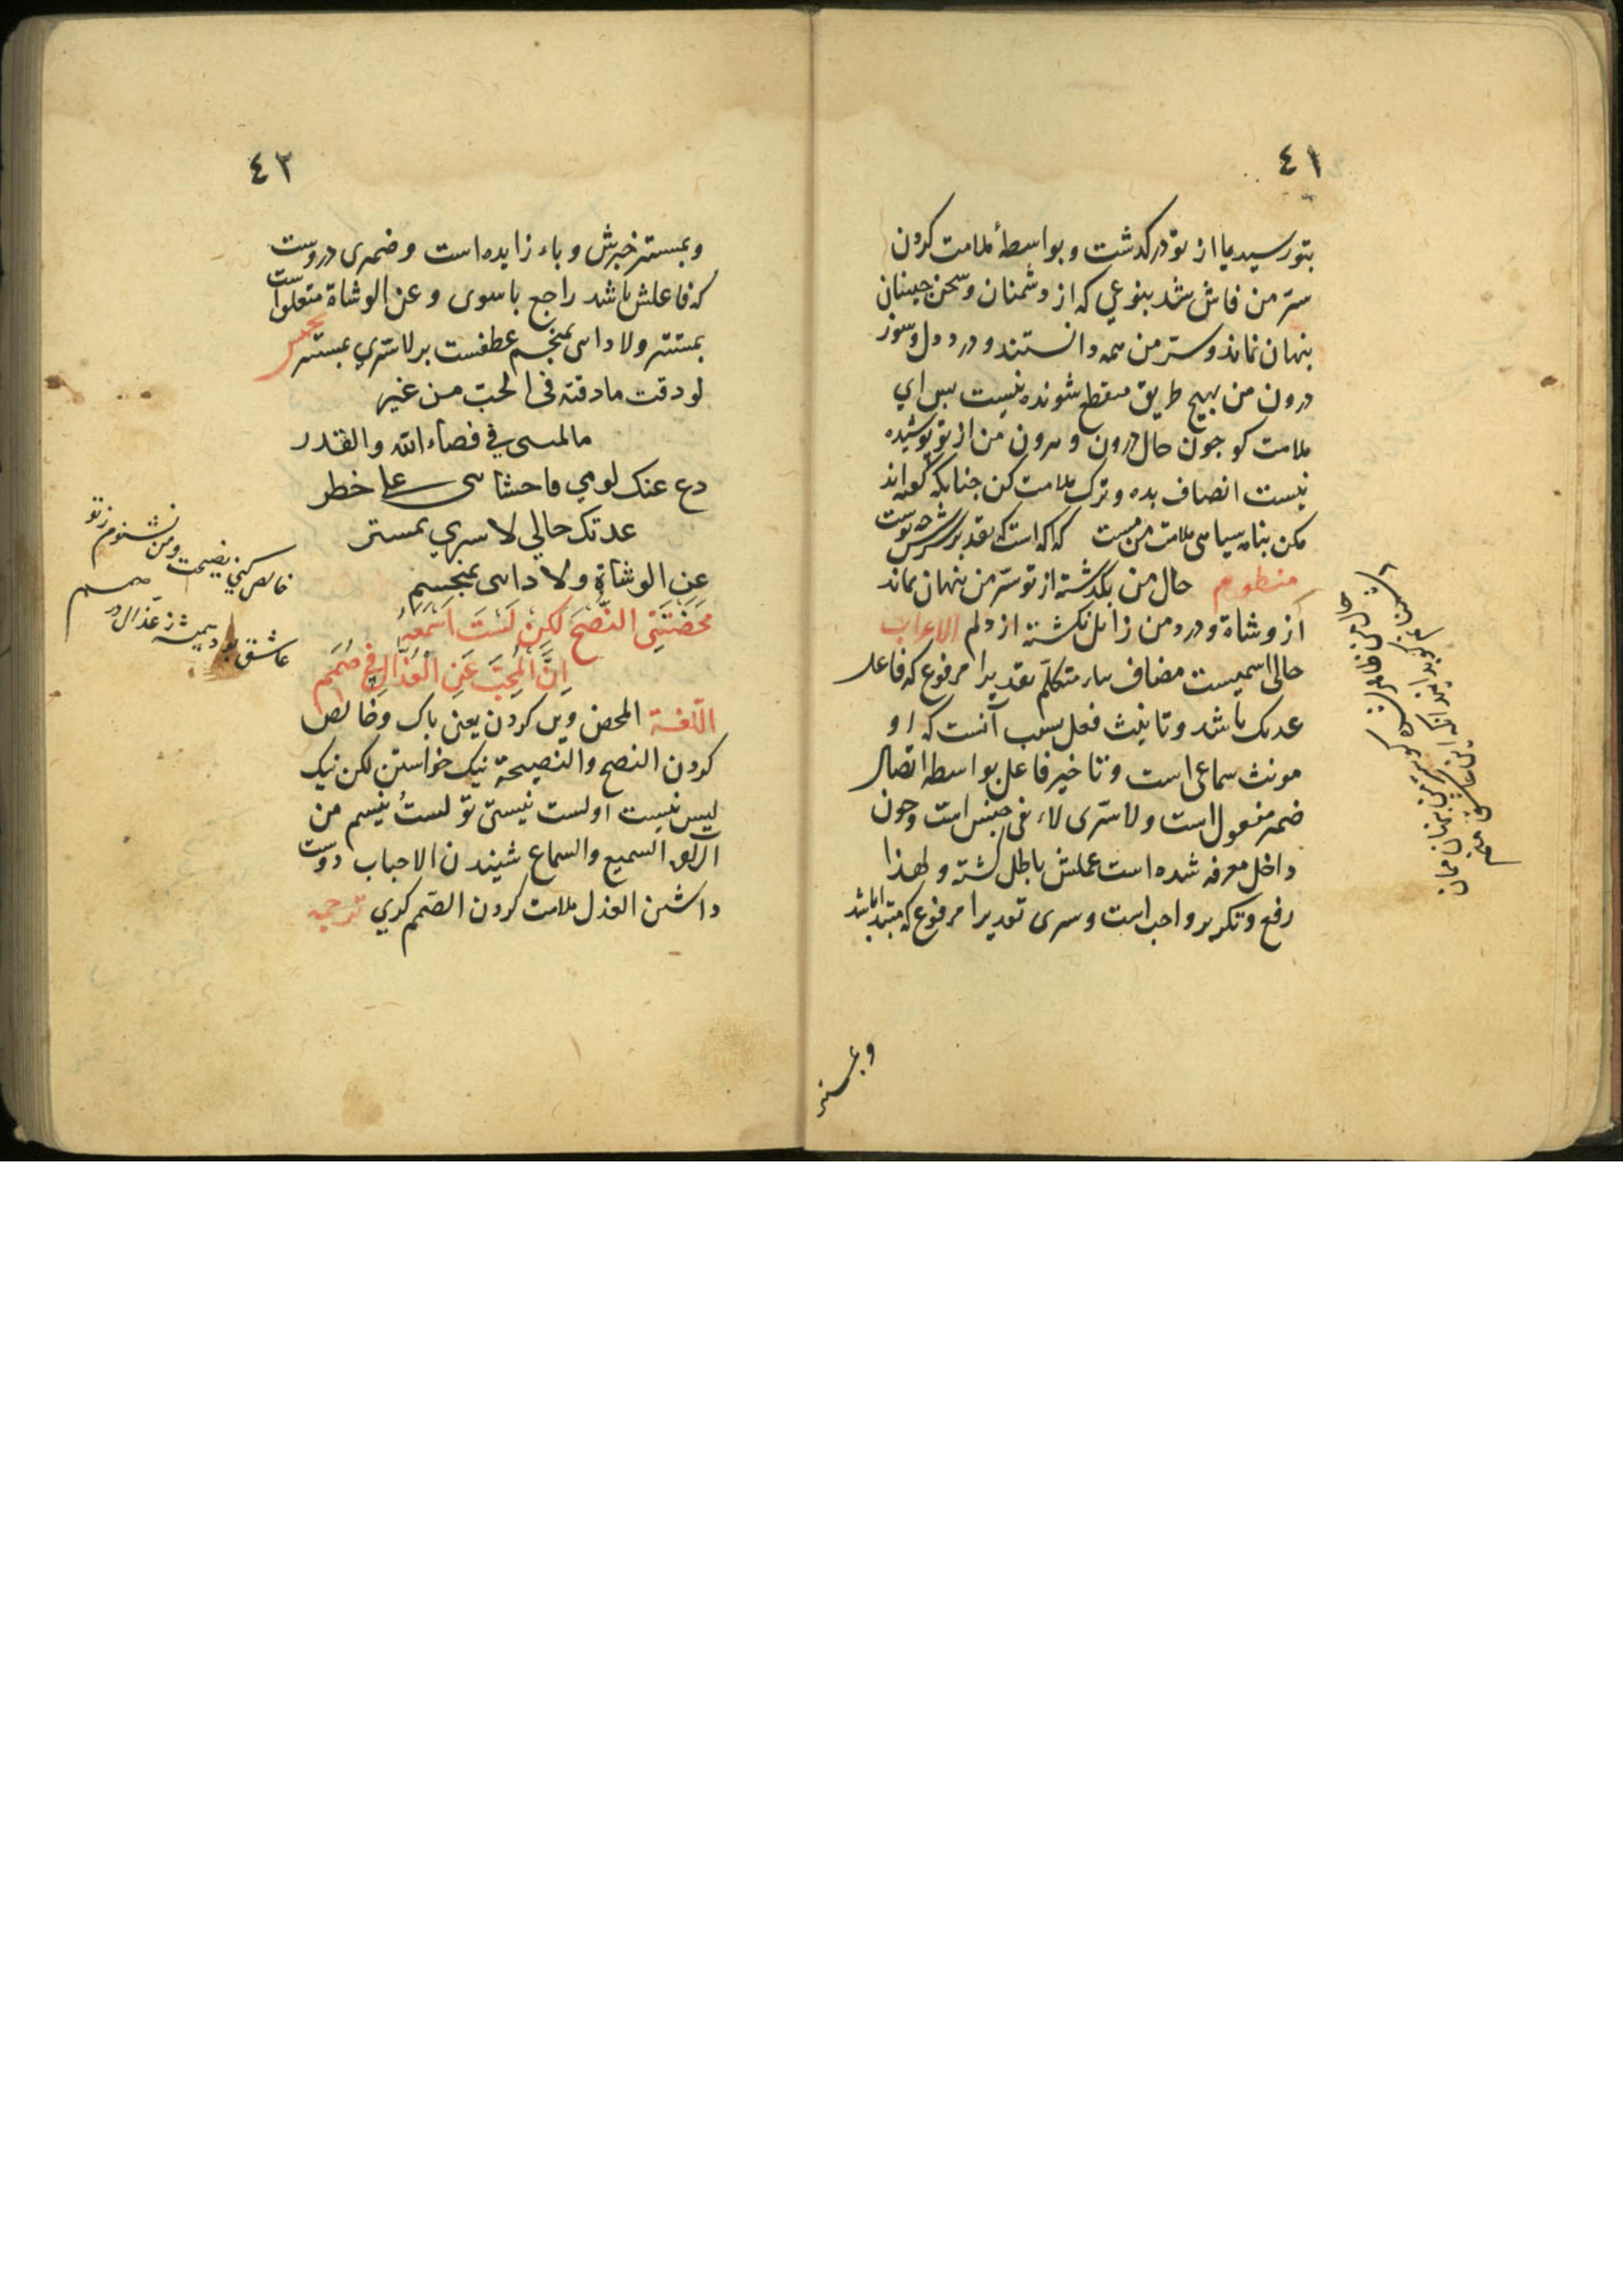 ٤١
بتو رسید یا از تو درگذشت و بواسطهٔ ملامت کردن
سرّ من فاش شد بنوعی که از دشمنان و سخن چینان
پنهان نماند و سرّ من همه دانستند و درد دل و سوز
درون من بهیچ طریق منقطع شونده نیست پس ای
ملامت کو جون حال درون و برون من از تو پوشیده
نیست انصاف بده و ترک ملامت کن جنانکه گفته اند
مکن بنامه سیاهی ملامت من مست که آکه است که تقدیر بر سرش چه نوشت
منظوم حال من بگذشته از تو سرّ من پنهان نماند
از وشاة و درد من زائل نگشته از دلم الاعراب
حالی اسمیست مضاف بیاء متکلّم تقدیرا مرفوع که فاعل
عدتک باشد و تانیث فعل بسبب آنست که او
مونث سماعی است و تاخیر فاعل بواسطه اتصال
ضمیر مفعول است و لا سرّی لاء نفی جنس است و جون
داخل معرفه شده است عملش باطل گشته و لهذا
رفع و تکریر واجب است و سری تقدیرا مرفوع که مبتدا باشد
وبمستتر
٤٢
وبمستتر خبرش و باء زایده است و ضمیری دروست
که فاعلش باشد راجع با سوی و عن الوشاة متعلق است
بمستتر ولا دائی بمنجسم عطفست بر لا سرّی بمستتر مخمس
لو ذقت ما ذقته فی الحبّ من غیر
مالمتنی فی قضاء الله والقدر
دع عنک لومی فاحشائی علی خطر
عدتک حالی لا سری بمستتر
عن الوشاة ولا دائی بمنجسم
مَحَضْتَنِی النُّصْحَ لکِنْ لَسْتُ اَسْمَعُهُ
اِنَّ الْمُحِبَّ عَنِ الْعُذَّالِ فِی صَمَمِ
اللّغة المحض ویژ کردن یعنی پاک و خالص
کردن النصح والنصیحة نیک خواستن لکن نیک
لیس نیست او لست نیستی تو لستُ نیسم من
السمیع والسماع شنیدن الاحباب دوست
داشتن العذل ملامت کردن الصّمم کری ترجمه
خالص کنی نصیحت و من نشنوم ز تو
عاشق بود همیشه ز عذّال در صمم